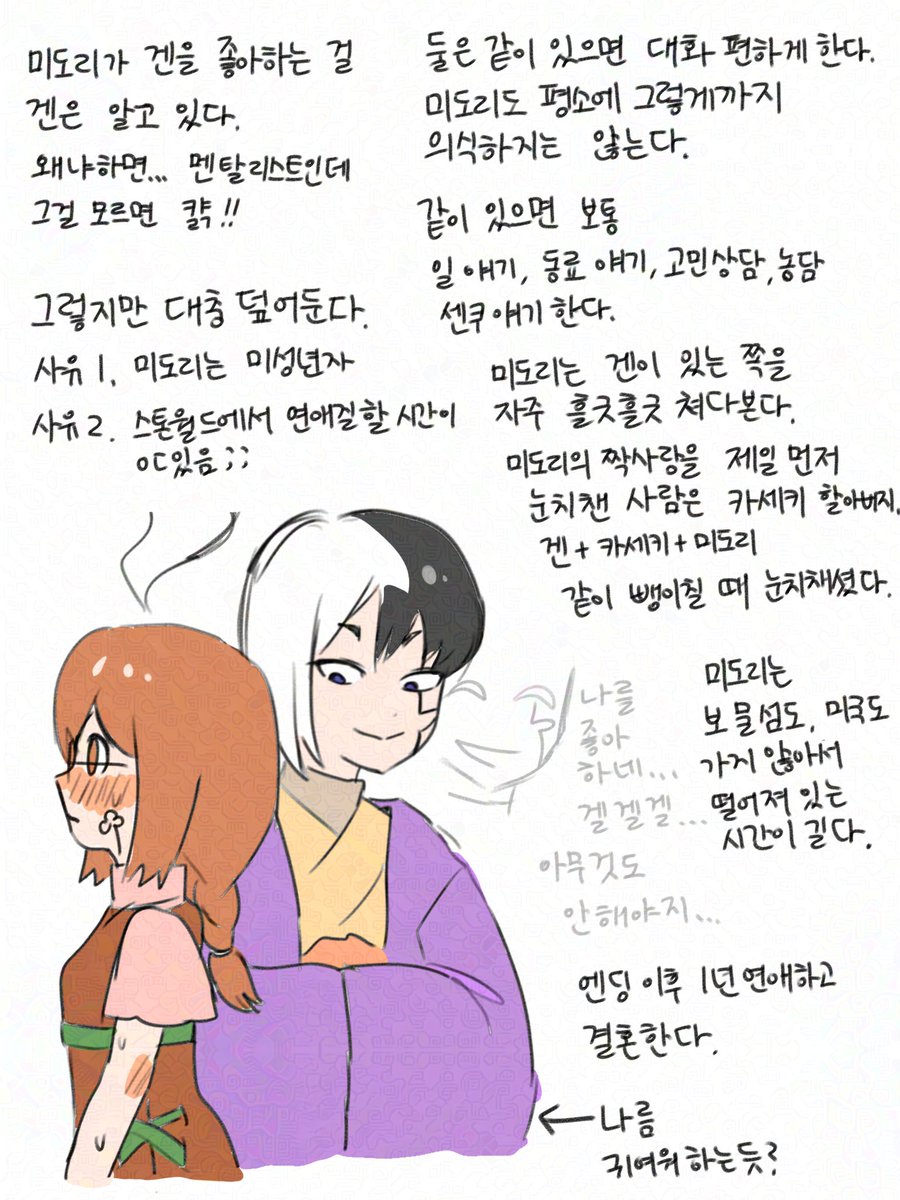 미도리가 겐을 좋아하는 걸
겐은 알고 있다.
왜냐하면... 멘탈리스트인데
그걸 모르면 컄!!
그렇지만 대충 덮어둔다.
사유 1. 미도리는 미성년자
사유 2. 스톤월드에서 연애질할 시간이
ㅇㄷ있음;;
둘은 같이 있으면 대화 편하게 한다.
미도리도 평소에 그렇게까지
의식하지는 않는다.
같이 있으면 보통
일 얘기, 동료 얘기, 고민상담, 농담
센쿠 얘기 한다.
미도리는 겐이 있는 쪽을
자주 흘긋흘긋 쳐다본다.
미도리의 짝사랑을 제일 먼저
눈치챈 사람은 카세키 할아버지.
겐 + 카세키 + 미도리
같이 뺑이칠 때 눈치채셨다.
미도리는
보물섬도, 미국도
가지 않아서
떨어져 있는
시간이 길다.
나를
좋아
하네...
겔겔겔...
아무것도
안해야지...
엔딩 이후 1년 연애하고
결혼한다.
← 나름
귀여워 하는 듯?